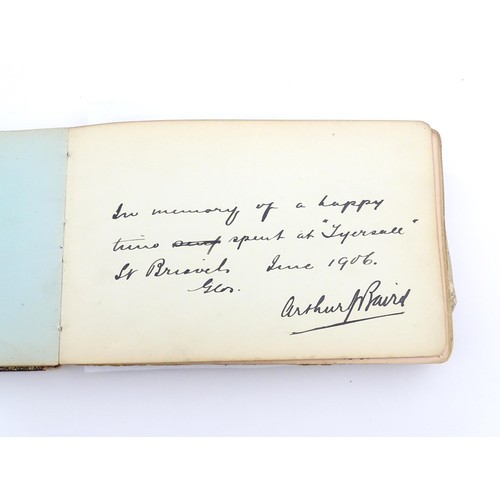 In memory of a happy
time spent at "Tyersall"
St Briavels June 1906.
Glos.
Arthur J Baird